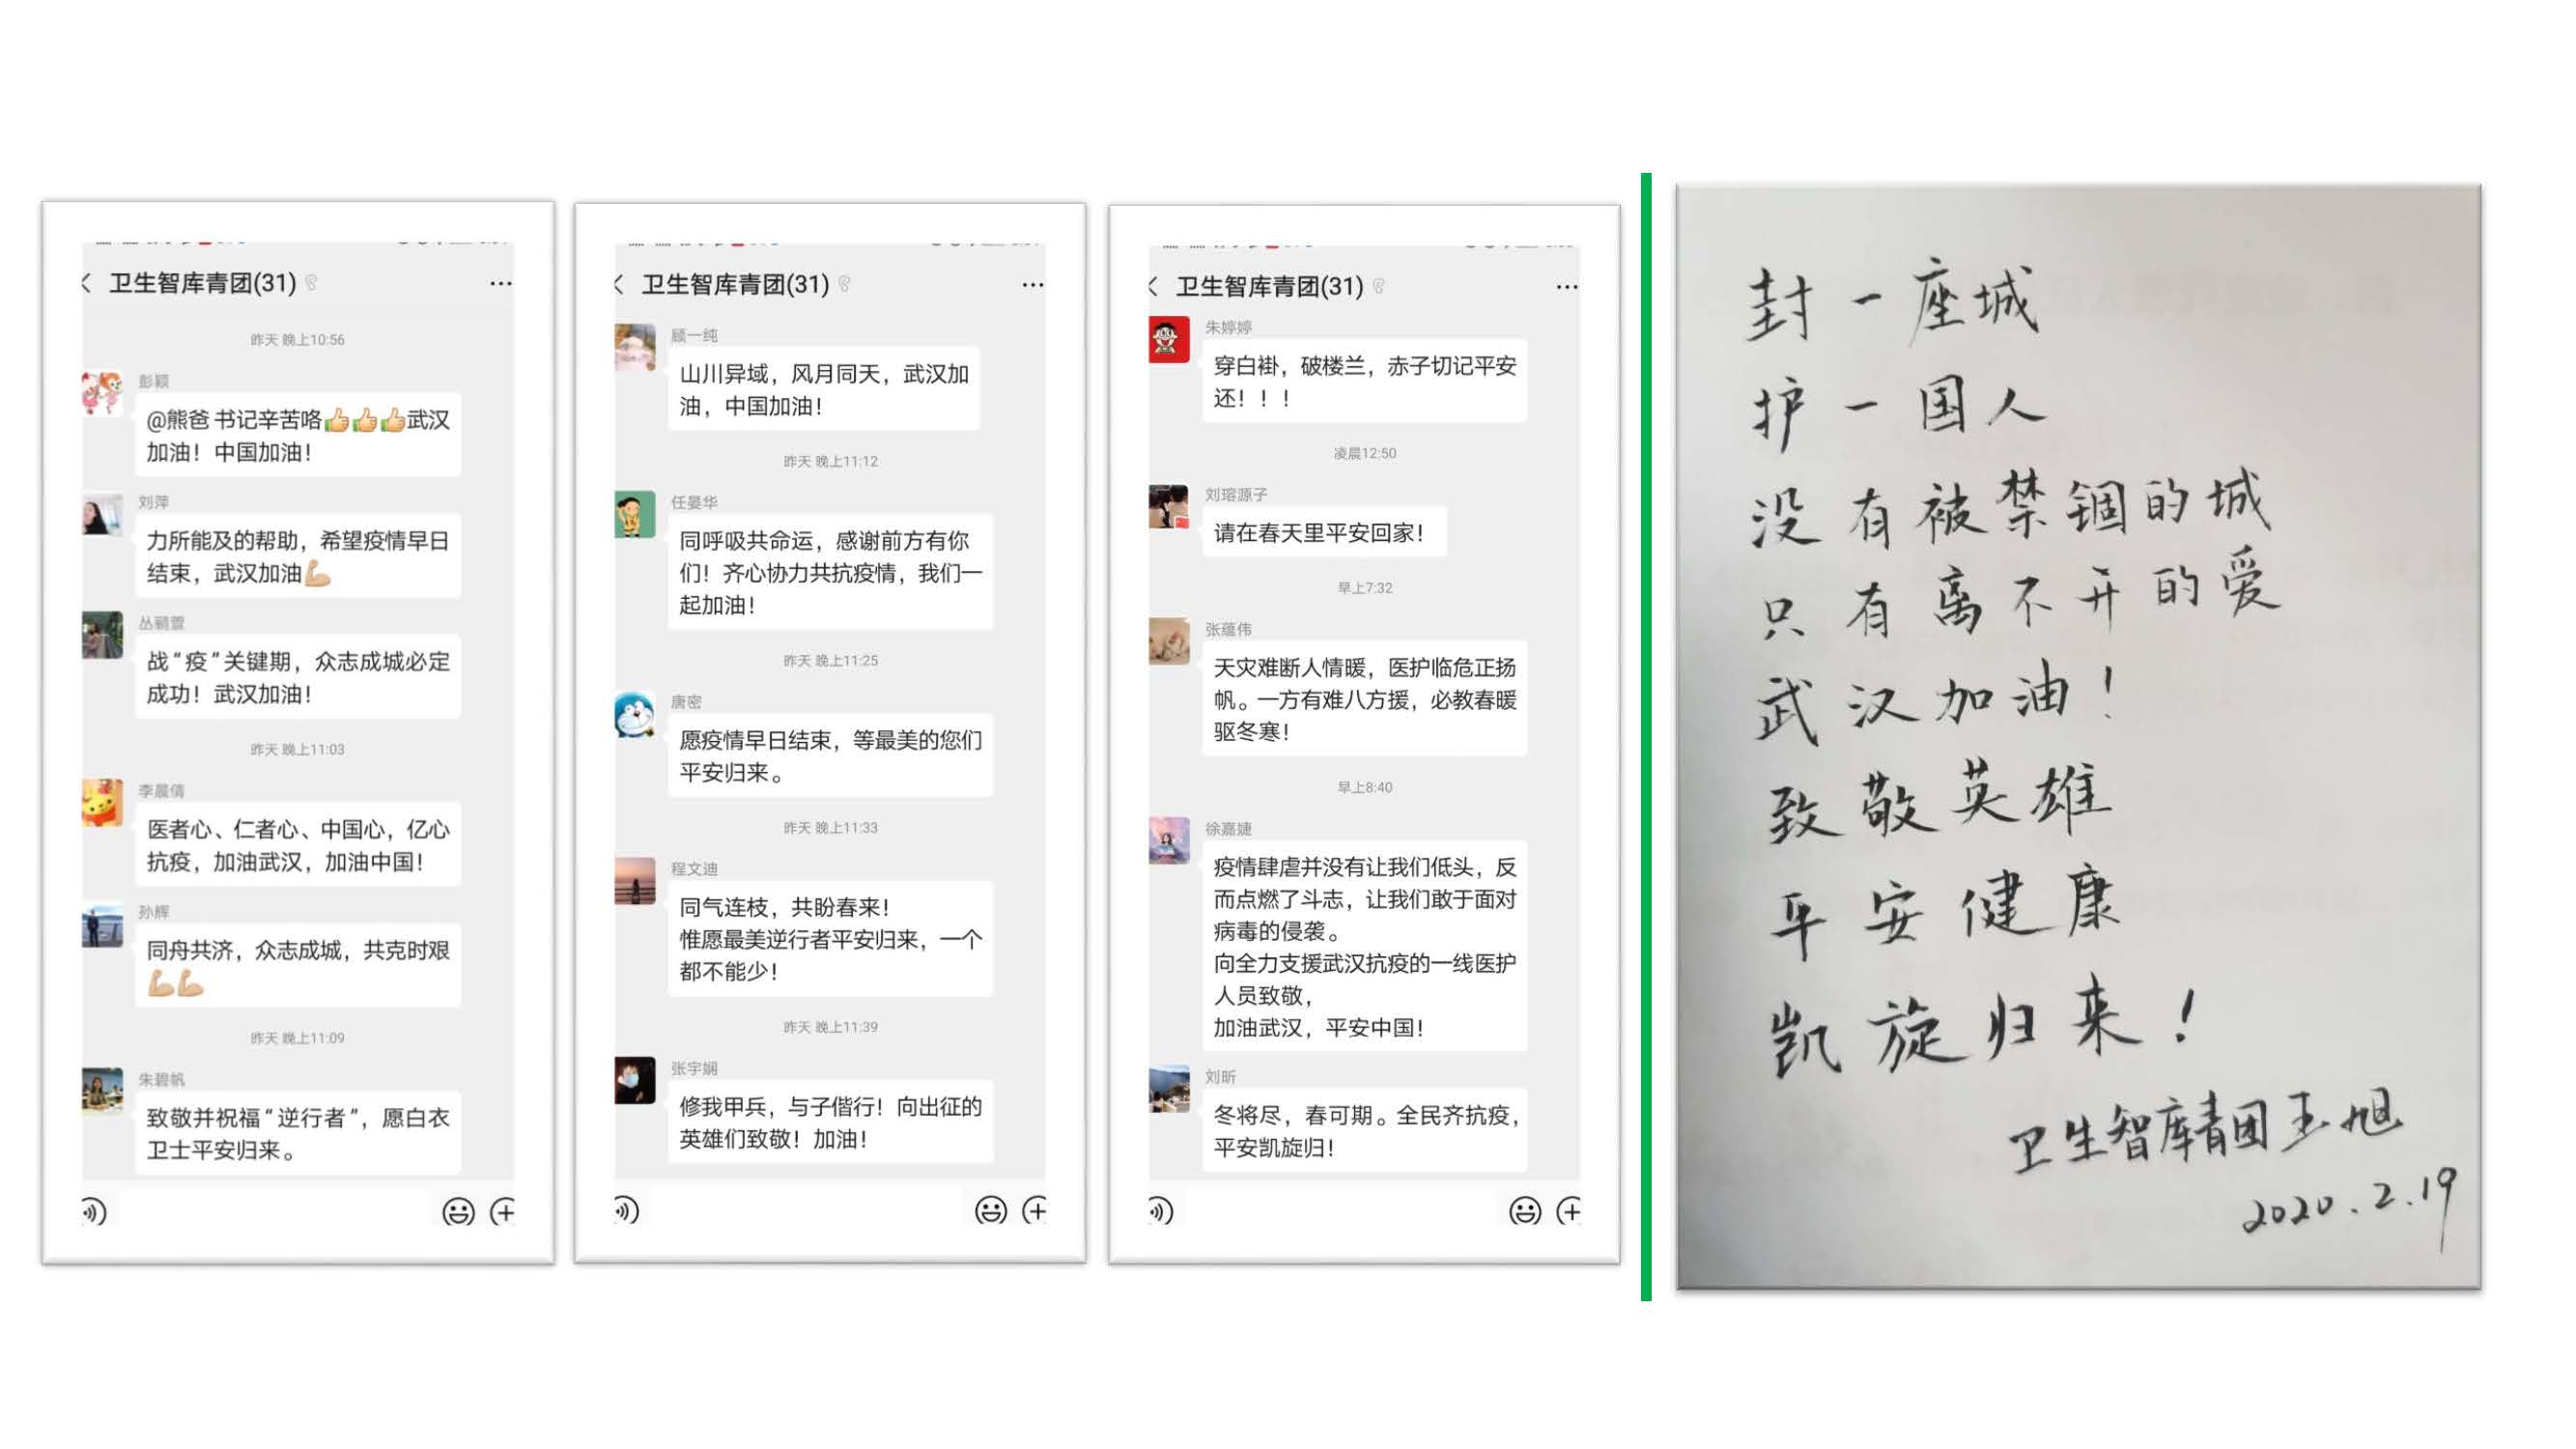 卫生智库青团(31)
昨天 晚上10:56
彭颖
@熊爸 书记辛苦咯👍👍👍武汉
加油！中国加油！
刘萍
力所能及的帮助，希望疫情早日
结束，武汉加油💪
丛鹂萱
战“疫”关键期，众志成城必定
成功！武汉加油！
昨天 晚上11:03
李晨倩
医者心、仁者心、中国心，亿心
抗疫，加油武汉，加油中国！
孙辉
同舟共济，众志成城，共克时艰
💪💪
昨天 晚上11:09
朱碧帆
致敬并祝福“逆行者”，愿白衣
卫士平安归来。
卫生智库青团(31)
顾一纯
山川异域，风月同天，武汉加
油，中国加油！
昨天 晚上11:12
任晏华
同呼吸共命运，感谢前方有你
们！齐心协力共抗疫情，我们一
起加油！
昨天 晚上11:25
唐密
愿疫情早日结束，等最美的您们
平安归来。
昨天 晚上11:33
程文迪
同气连枝，共盼春来！
惟愿最美逆行者平安归来，一个
都不能少！
昨天 晚上11:39
张宇娴
修我甲兵，与子偕行！向出征的
英雄们致敬！加油！
卫生智库青团(31)
朱婷婷
穿白褂，破楼兰，赤子切记平安
还！！！
凌晨12:50
刘瑢源子
请在春天里平安回家！
早上7:32
张蕴伟
天灾难断人情暖，医护临危正扬
帆。一方有难八方援，必教春暖
驱冬寒！
早上8:40
徐嘉婕
疫情肆虐并没有让我们低头，反
而点燃了斗志，让我们敢于面对
病毒的侵袭。
向全力支援武汉抗疫的一线医护
人员致敬，
加油武汉，平安中国！
刘昕
冬将尽，春可期。全民齐抗疫，
平安凯旋归！
封一座城
护一国人
没有被禁锢的城
只有离不开的爱
武汉加油！
致敬英雄
平安健康
凯旋归来！
卫生智库青团王旭
2020.2.19